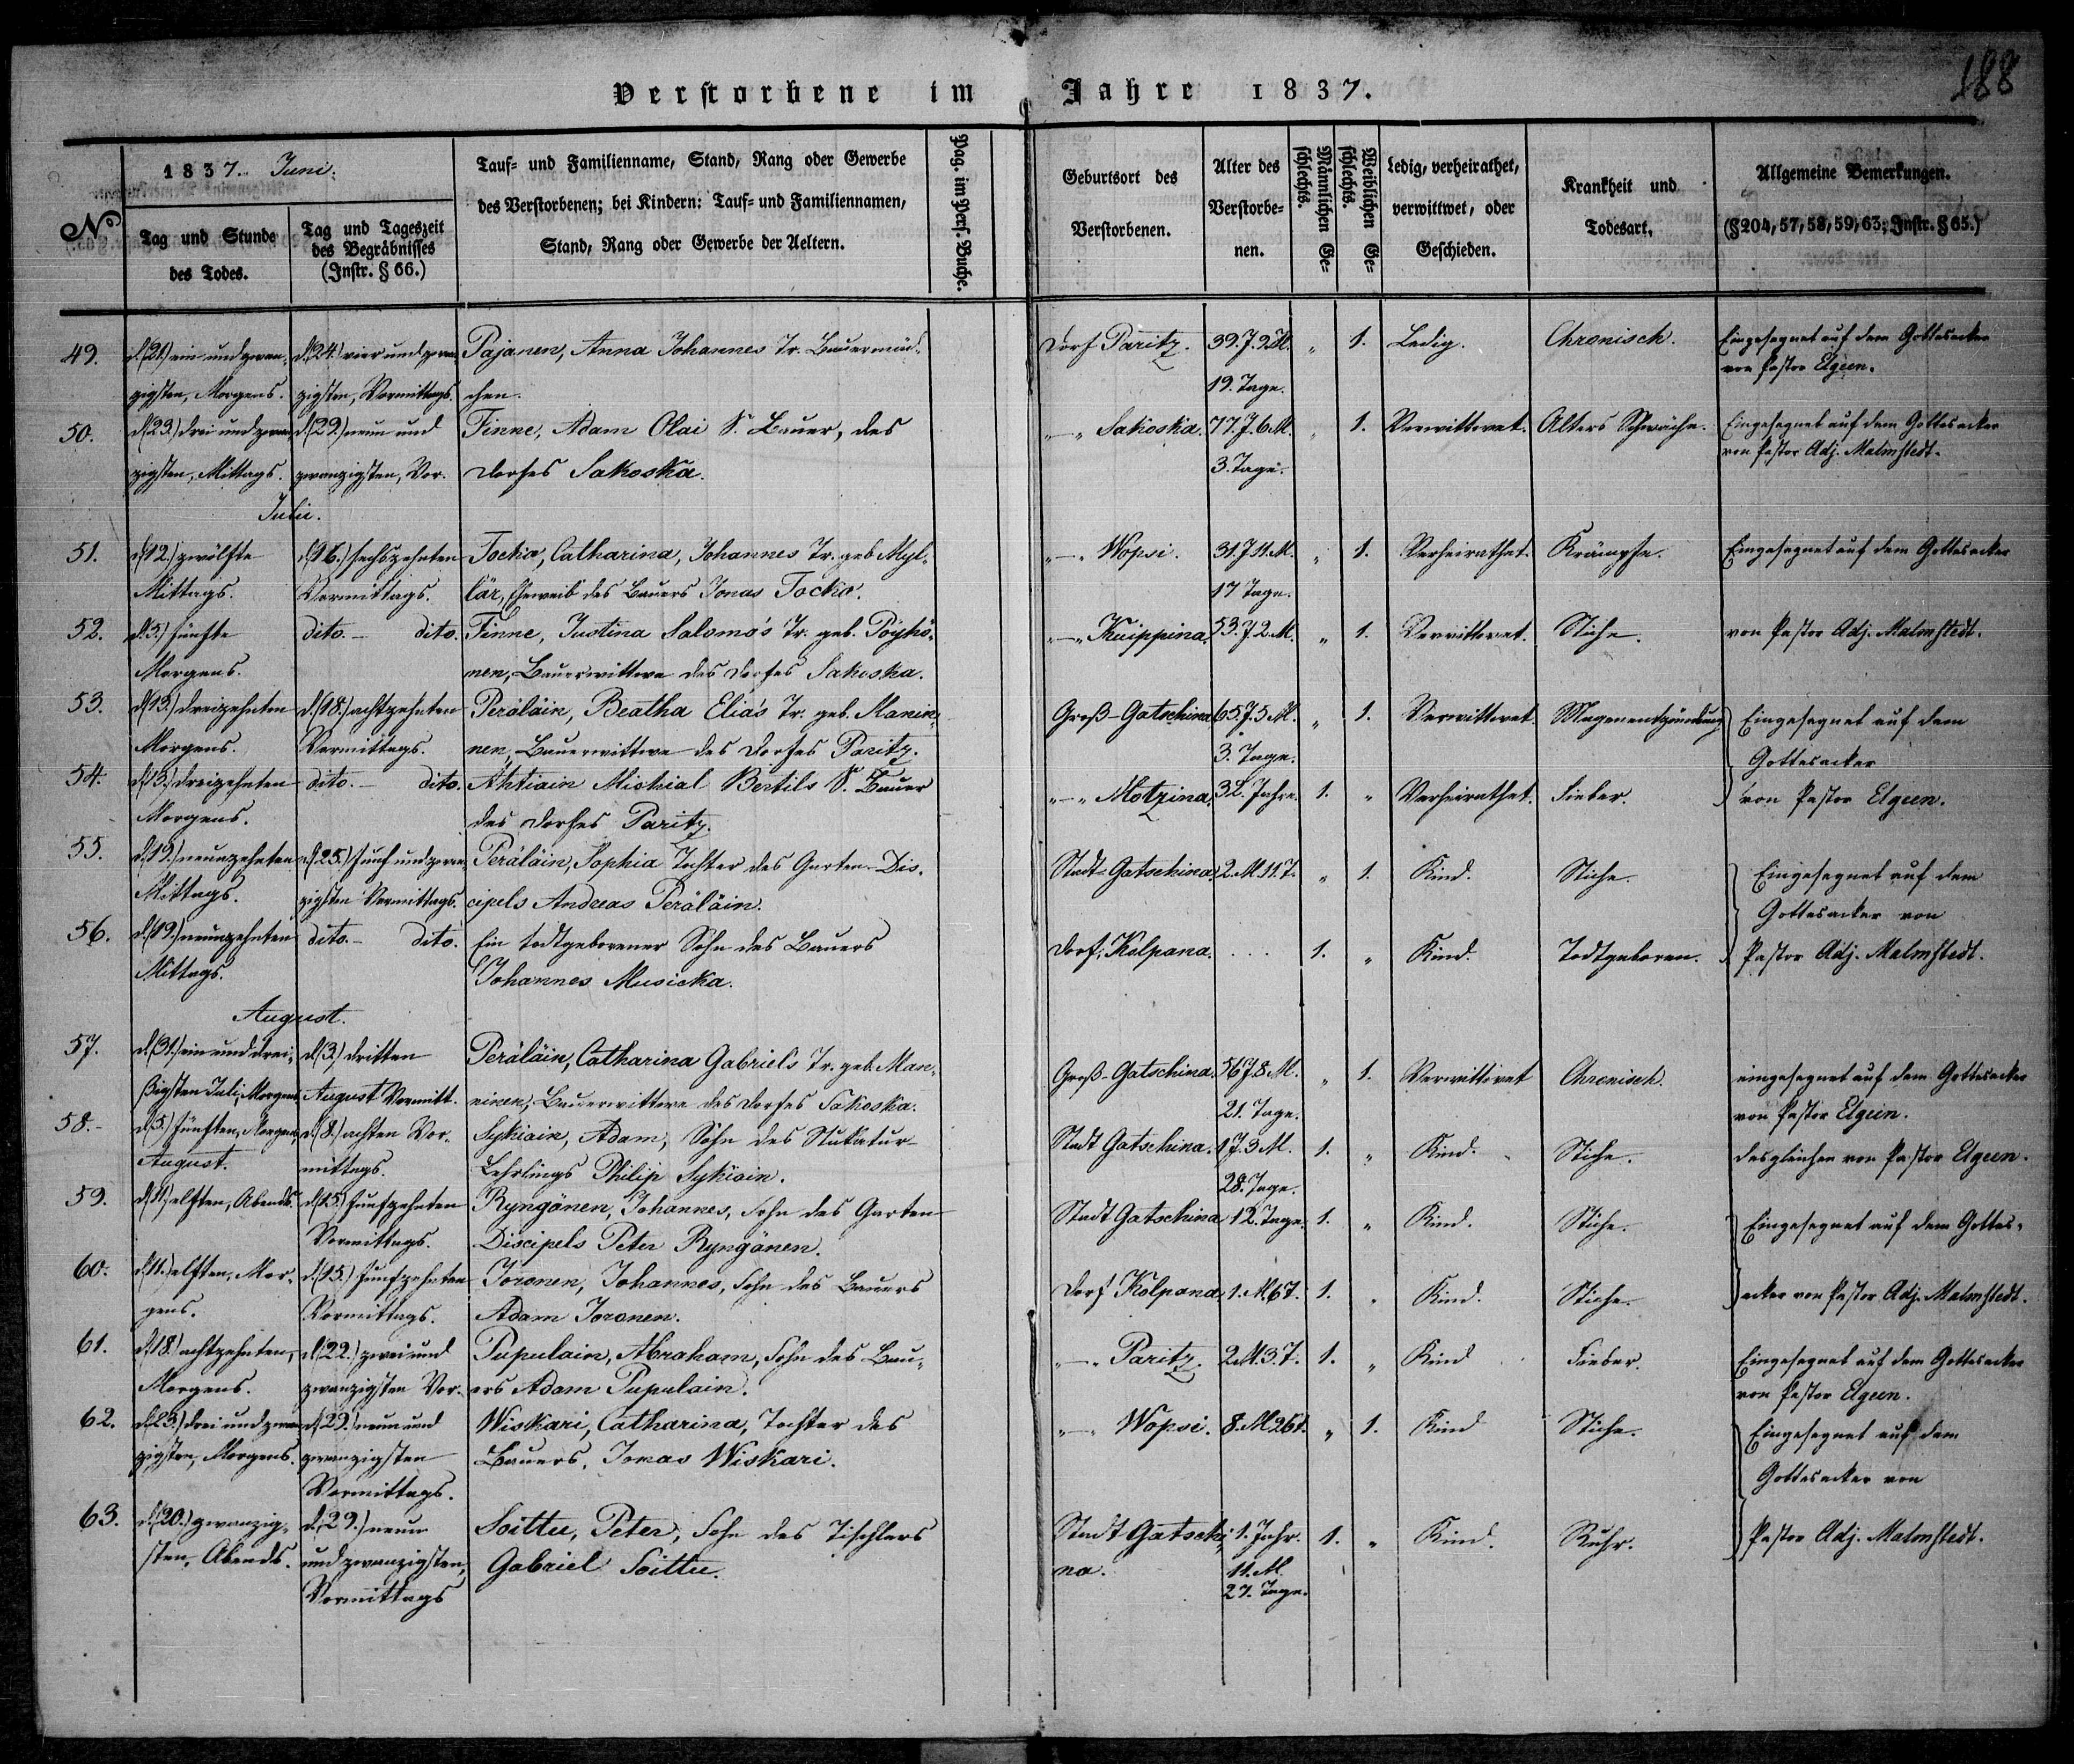 188
Verstorbene im Jahre 1837.
No
1837. Juni.
Tag und Stunde
des Todes.
Tag und Tageszeit
des Begräbnisses
(Instr. § 66.)
Tauf- und Familienname, Stand, Rang oder Gewerbe
des Verstorbenen; bei Kindern: Tauf- und Familiennamen,
Stand, Rang oder Gewerbe der Aeltern.
Pag. im Pers. Buche.
Geburtsort des
Verstorbenen.
Alter des
Verstorbe-
nen.
Männlichen Ge-
schlechts.
Weiblichen Ge-
schlechts.
Ledig, verheirathet,
verwittwet, oder
Geschieden.
Krankheit und
Todesart.
Allgemeine Bemerkungen.
(§ 204, 57, 58, 59, 63; Instr. § 65.)
49. d. (21.) ein und zwan- d. (24.) vier und zwan- Pajanen, Anna Johannes Tr. Bauermäd- Dorf Paritz. 39. J. 9. M. „ 1. Ledig. Chronisch. Eingesegnet auf dem Gottesacker
zigsten, Morgens. zigsten, Vormittags. chen. 19. Tage. von Pastor Elgeen.
50. d. (23.) drei und zwan- d. (29.) neun und Finne, Adam Olai S. Bauer, des „—„ Sakoska. 77. J. 6. M. „ 1. Verwittwet. Alters Schwäche. Eingesegnet auf dem Gottesacker
zigsten, Mittags. zwanzigsten, Vor. Dorfes Sakoska. 3. Tage. von Pastor Adj. Malmstedt.
Julii.
51. d. (12.) zwölfte d. (16.) sechszehnten Tocka, Catharina, Johannes Tr. geb. Myl- „—„ Wopsi. 31. J. 11. M. „ 1. Verheirathet. Krämpfe. Eingesegnet auf dem Gottesacker
Mittags. Vormittags. lär, Eheweib des Bauers Jonas Tocka. 17 Tage.
52. d. 5.) fünfte dito. — dito. Finne, Justina Salomo's Tr. geb. Pöyhö- „—„ Kuippina. 53. J. 2. M. „ 1. Verwittwet. Stiche. von Pastor Adj. Malmstedt.
Morgens. nen, Bauerwittwe des Dorfes Sakoska.
53. d. (13.) dreizehnten d. (18.) achtzehnten Peräläin, Beatha Elia's Tr. geb. Manin- Groß-Gatschina 65. J. 5 M. „ 1. Verwittwet Magenentzündung. Eingesegnet auf dem
Morgens. Vormittags. nen, Bauerwittwe des Dorfes Paritz. 3. Tage. Gottesacker
54. d. (13.) dreizehnten dito. — dito. Ahtiain Michial Bertils S. Bauer „—„ Motzina. 32. Jahre. 1. „ Verheirathet. Fieber. von Pastor Elgeen.
Morgens. des Dorfes Paritz.
55. d. (19.) neunzehnten d. (25.) fünf und zwan- Peräläin, Sophia Tochter des Garten-Dis- Stadt-Gatschina. 2. M. 11. T. „ 1. Kind. Stiche. Eingesegnet auf dem
Mittags. zigsten Vormittags. cipels Andreas Peräläin. Gottesacker von
56. d. (19.) neunzehnten dito. — dito. Ein todtgeborener Sohn des Bauers Dorf, Kolpana. . . . 1. „ Kind. Todtgeboren. Pastor Adj. Malmstedt.
Mittags. Johannes Musicka.
August.
57. d. (31.) ein und drei- d. (3.) dritten Peräläin, Catharina Gabriels Tr. geb. Man- Groß-Gatschina. 56 J. 8 M. „ 1. Verwittwet Chronisch. eingesegnet auf dem Gottesacker
ßigsten Juli, Morgens August Vormitt. ninen, Bauerwittwe des Dorfes Sakoska. 21. Tage. von Pastor Elgeen.
58. d. (5.) fünften, Morgens, d. (8.) achten Vor- Sykiäin, Adam, Sohn des Stukatur- Stadt Gatschina. 1 J. 3 M. 1. „ Kind. Stiche. desgleichen von Pastor Elgeen.
August. mittags. Lehrlings Philip Sykiäin. 28. Tage.
59. d. (11.) elften, Abends. d. (15.) fünfzehnten Ryngänen, Johannes, Sohn des Garten- Stadt Gatschina 12. Tage. 1. „ Kind. Stiche. Eingesegnet auf dem Gottes-
Vormittags. Discipels Peter Ryngänen.
60. d. (11.) elften, Mor- d. (15.) fünfzehnten Joronen, Johannes, Sohn des Bauers Dorf Kolpana, 1. M. 6 T. 1. „ Kind. Stiche. acker von Pastor Adj. Malmstedt.
gens. Vormittags. Adam Joronen.
61. d. (18.) achtzehnten, d. (22.) zwei und Pupulain, Abraham, Sohn des Bau- „—„ Paritz. 2. M. 3. T. 1. „ Kind Fieber. Eingesegnet auf dem Gottesacker
Morgens. zwanzigsten Vor. ers Adam Pupulain. von Pastor Elgeen.
62. d. (23.) drei und zwan- d. (29.) neun und Wiskari, Catharina, Tochter des „—„ Wopsi. 8. M 26 T. „ 1. Kind Stiche. Eingesegnet auf dem
zigsten, Morgens. zwanzigsten Bauers, Jonas Wiskari. Gottesacker von
Vormittags.
63. d. (20.) zwanzig- d. (29.) neun Soittu, Peter, Sohn des Tischlers Stadt Gatschi- 1. Jahr. 1. „ Kind. Ruhr. Pastor Adj. Malmstedt.
sten, Abends. und zwanzigsten, Gabriel Soittu. na. 11. M.
Vormittags 27. Tage.